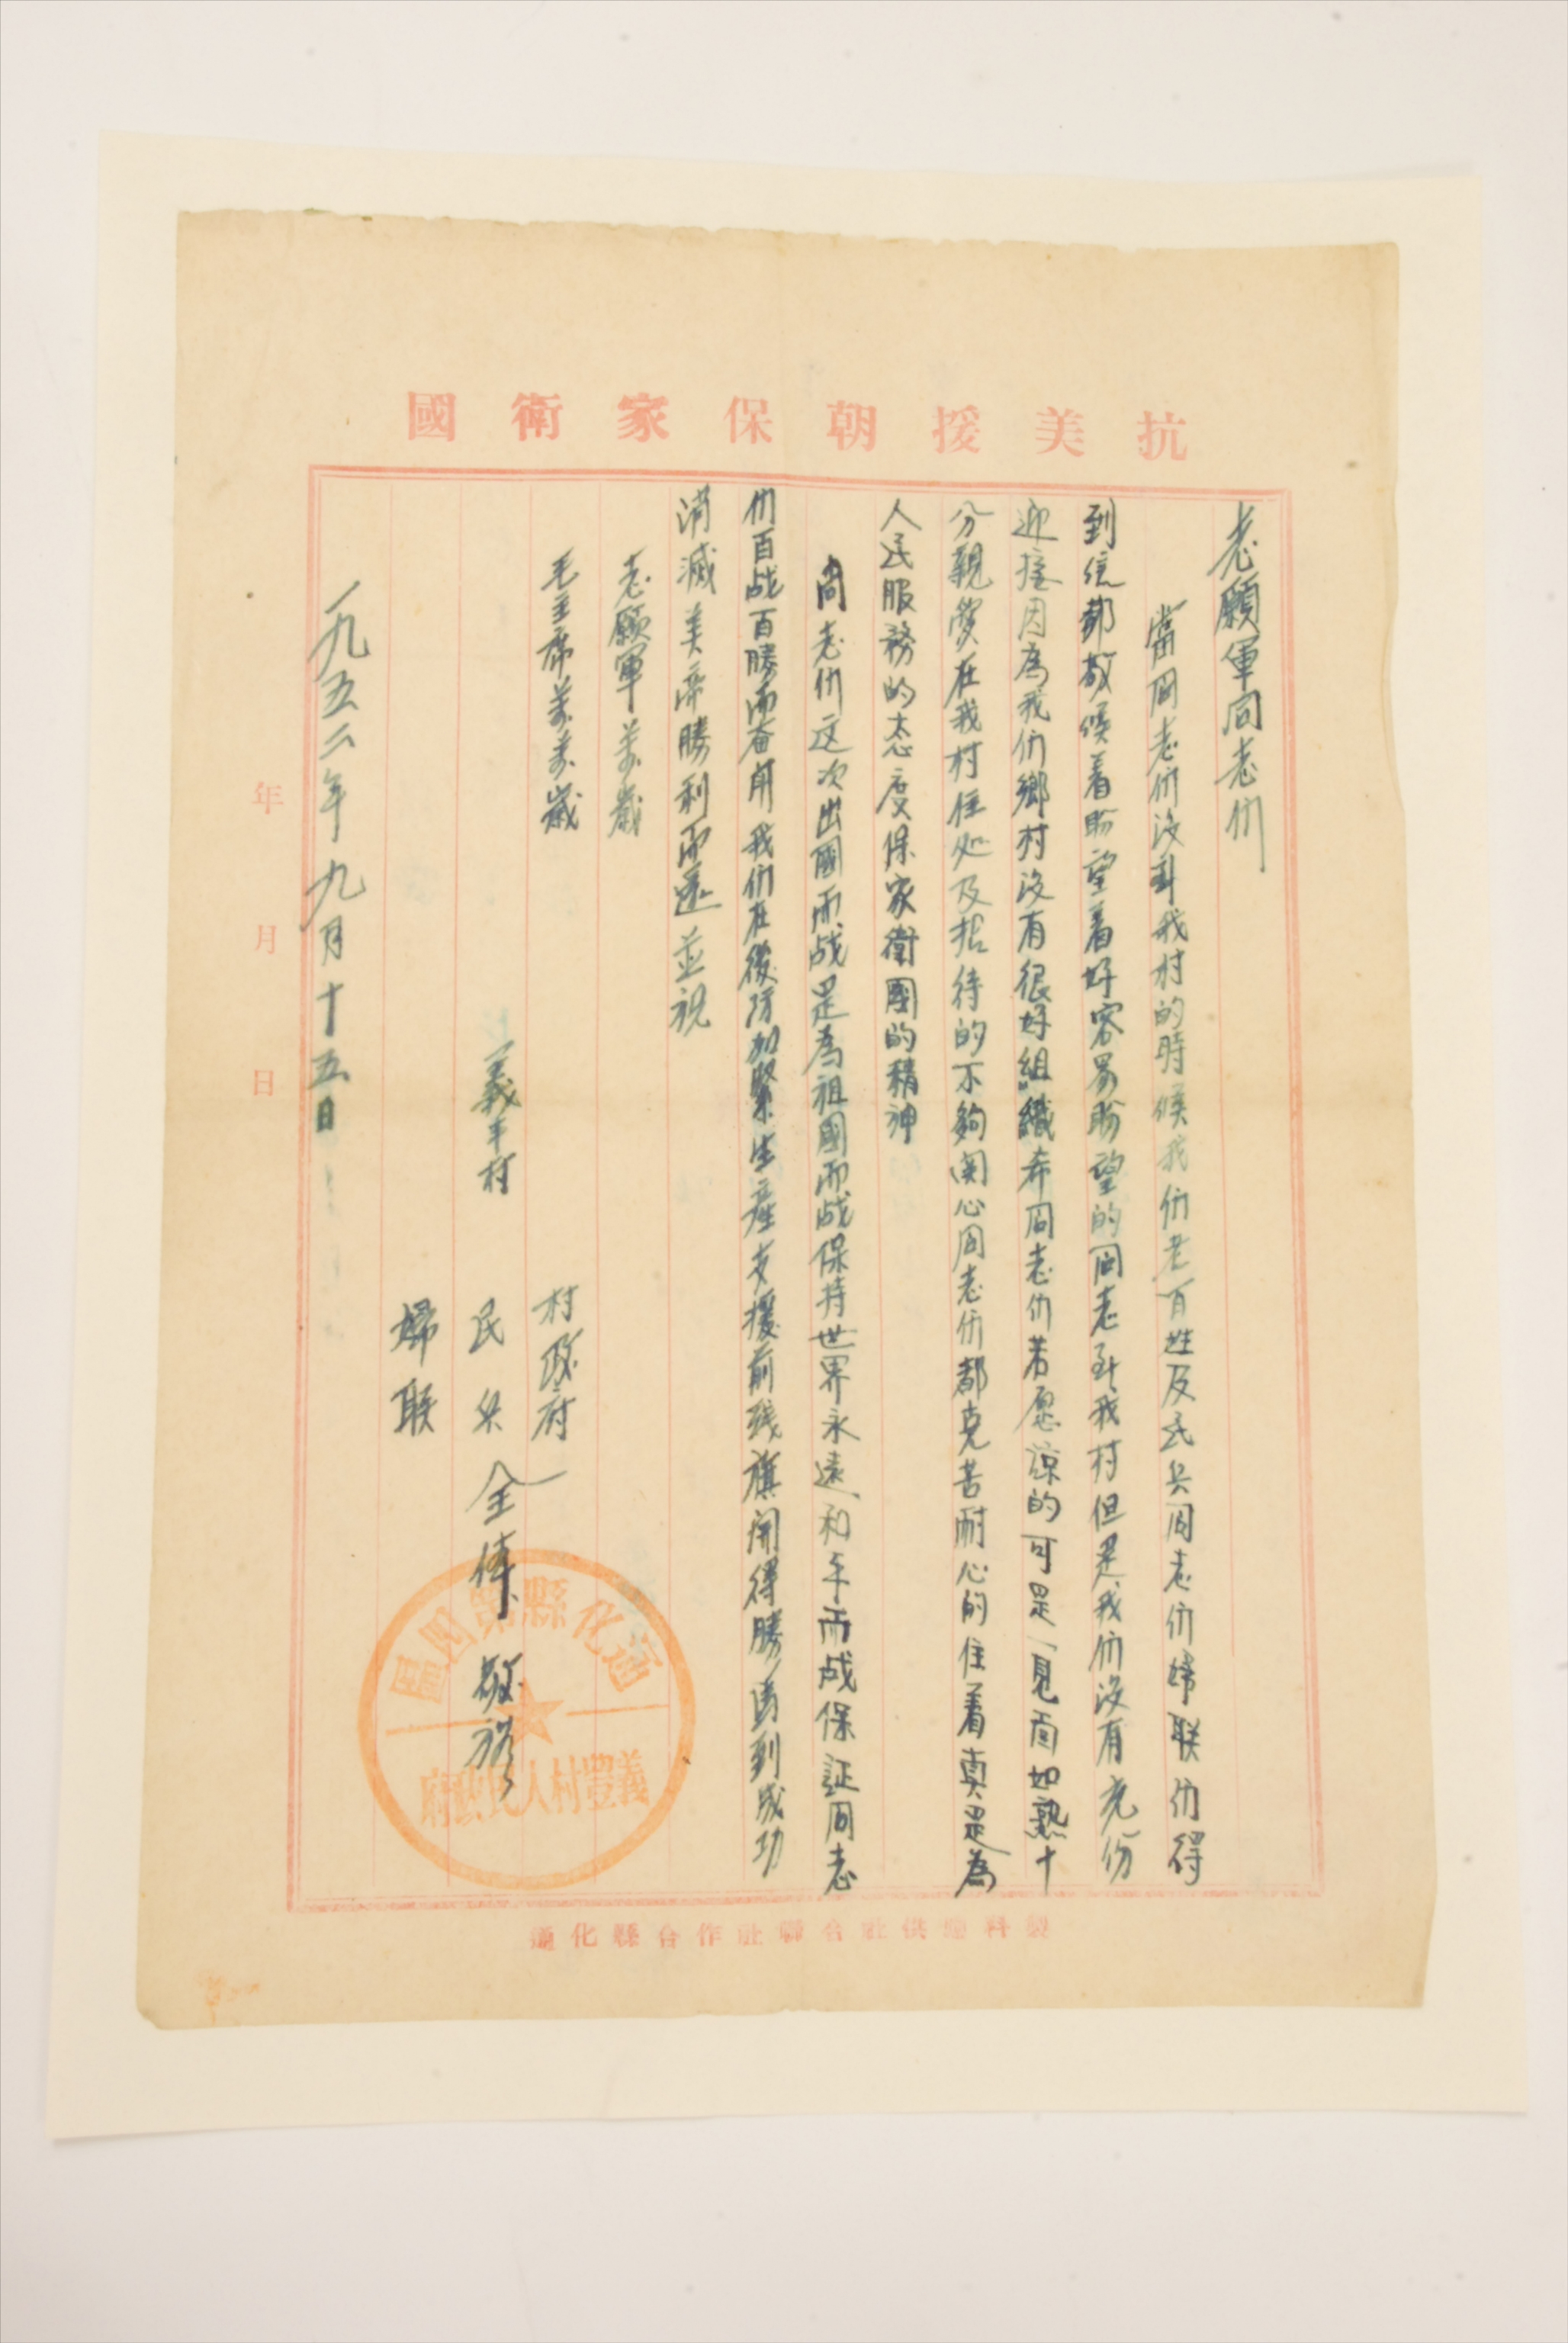 抗美援朝保家衛國
志願軍同志们
當同志们没到我村的時候我们老百姓及民兵同志们婦联们得
到信都敬候着盼望着好容易盼望的同志到我村但是我们没有充份
迎接因為我们鄉村没有很好組織希同志们若愿諒的可是一見面如熟十
分親愛在我村住处及招待的不夠関心同志们都克苦耐心的住着真是為
人民服務的态度保家衛國的精神
同志们这次出國而战是為祖國而战保持世界永遠和平而战保証同志
们百战百勝而奋闘我们在後防加緊生產支援前綫旗開得勝馬到成功
消滅美帝勝利而还並祝
志願軍萬歲
毛主席萬萬歲
義丰村
村政府
民兵 全体 敬禮
婦联
一九五二年九月十五日
年 月 日
通化縣第四區
義豐村人民政府
通化縣合作社聯合社供應科製